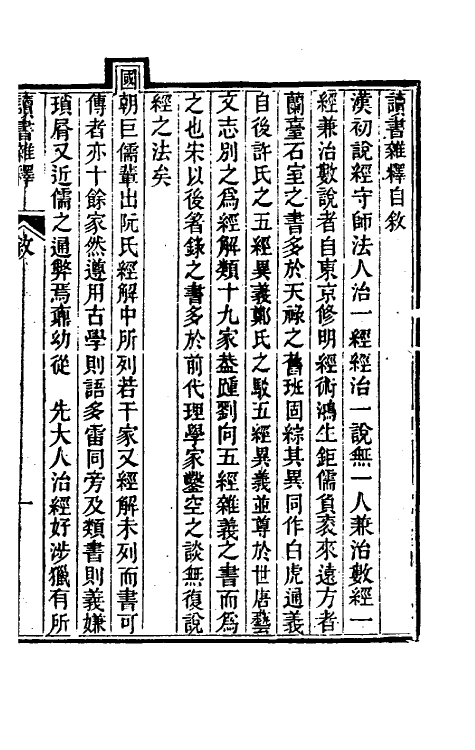 讀書雜釋自敘
漢初說經守師法人治一經經治一說無一人兼治數經一
經兼治數說者自東京修明經術鴻生鉅儒負袠來遠方者
蘭臺石室之書多於天祿之舊班固綜其異同作白虎通義
自後許氏之五經異義鄭氏之駁五經異義並尊於世唐藝
文志別之爲經解類十九家葢踵劉向五經雜義之書而爲
之也宋以後箸錄之書多於前代理學家鑿空之談無復說
經之法矣
國朝巨儒輩出阮氏經解中所列若干家又經解未列而書可
傳者亦十餘家然遵用古學則語多雷同旁及類書則義嫌
瑣屑又近儒之通弊焉鼒幼從 先大人治經好涉獵有所
讀書雜釋 敘 一